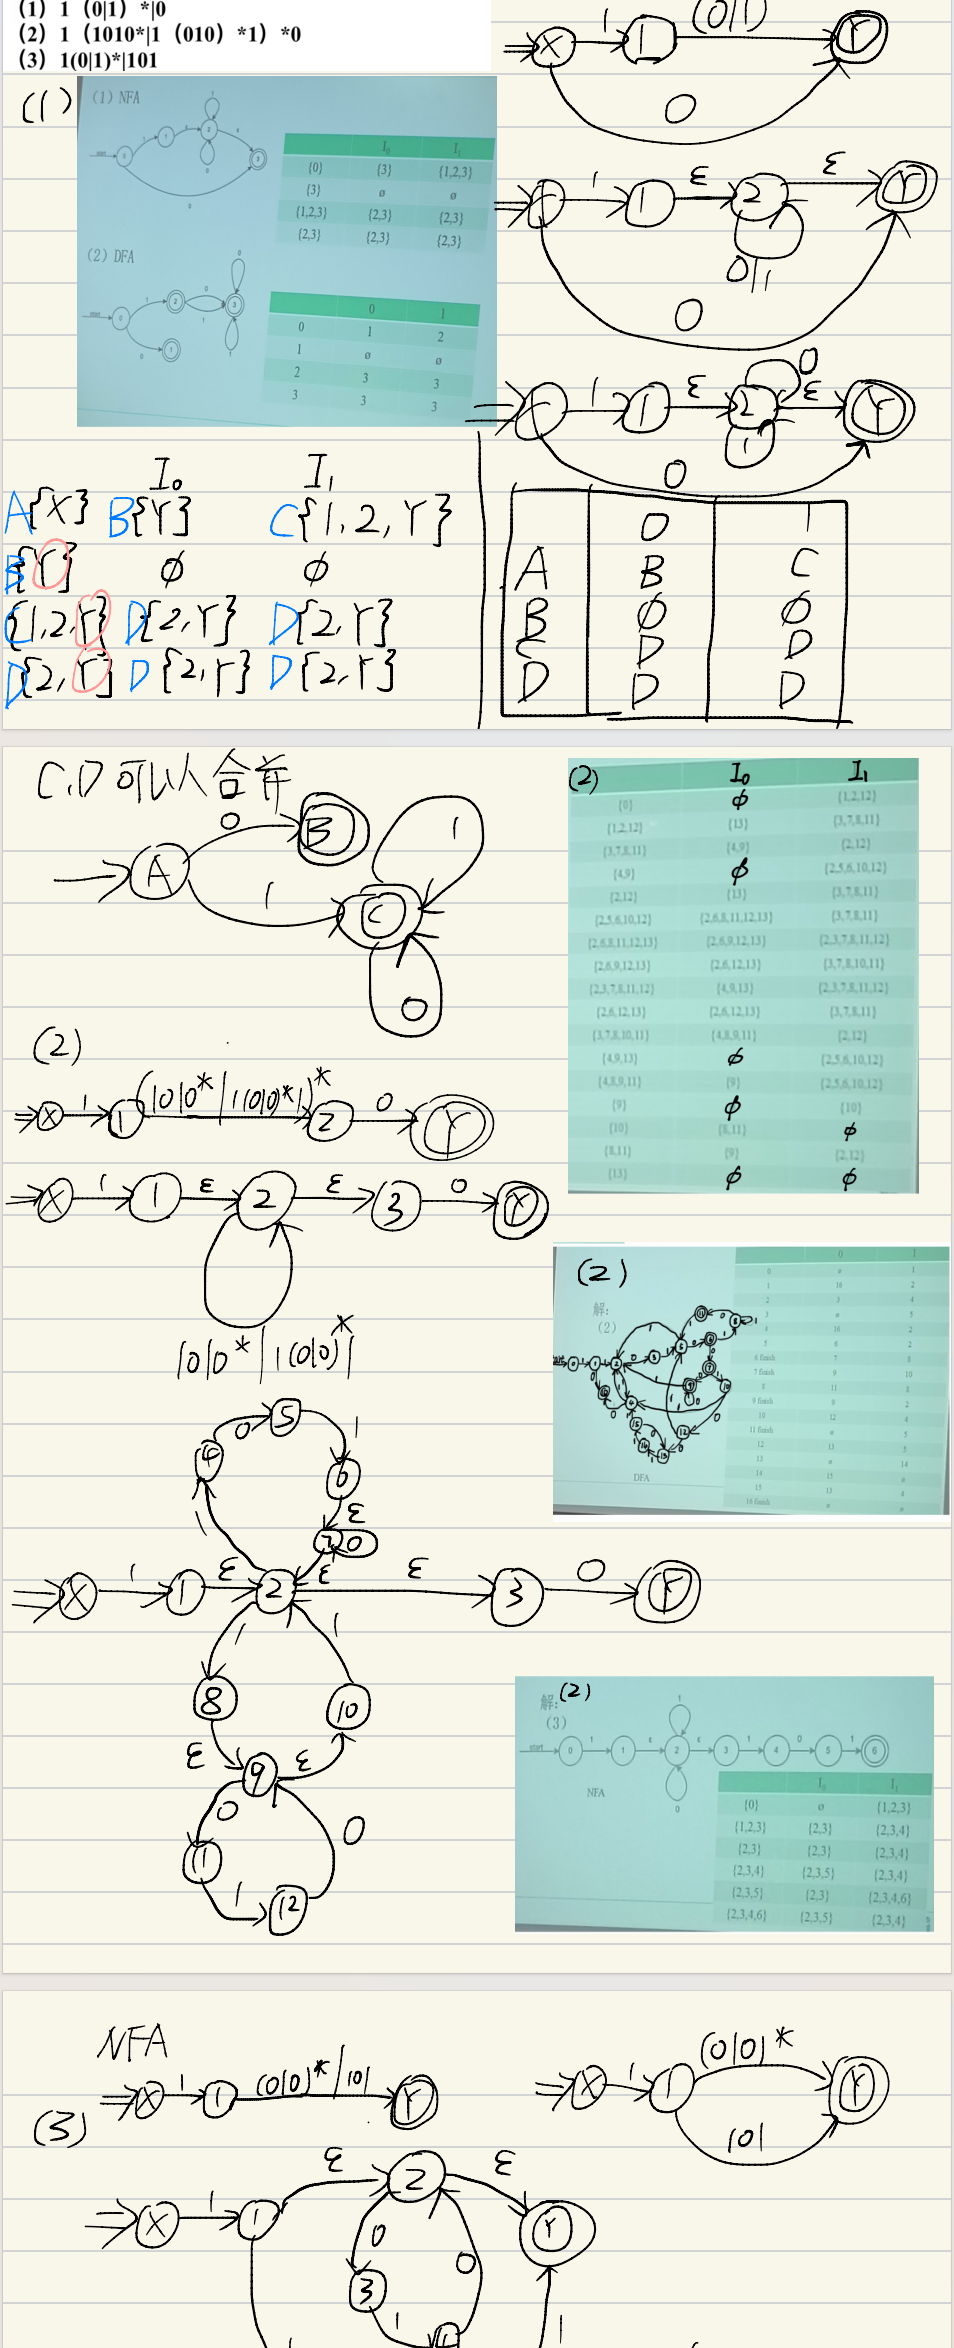 (1) 1 (0|1) *|0
(2) 1 (1010*|1 (010) *1) *0
(3) 1(0|1)*|101
(1)
X 1 1 (0|1) Y
0
(1) NFA
start 0 1 1 ε 2 ε 3
1
0
0
I₀ I₁
{0} {3} {1,2,3}
{3} ø ø
{1,2,3} {2,3} {2,3}
{2,3} {2,3} {2,3}
(2) DFA
start 0 1 2 0 1 3 0 1
0 1
0 1
0 1 2
1 ø ø
2 3 3
3 3 3
1 1 ε 2 ε Y
0|1
0
1 1 ε 2 ε Y
0
1
0
I₀ I₁
A{X} B{Y} C{1,2,Y}
B{Y} ∅ ∅
C{1,2,Y} D{2,Y} D{2,Y}
D{2,Y} D{2,Y} D{2,Y}
0 1
A B C
B ∅ ∅
C D D
D D D
C,D可以人合并
A 0 B
1 C 1
0
(2) I₀ I₁
{0} ∅ {1,2,12}
{1,2,12} {13} {3,7,8,11}
{3,7,8,11} {4,9} {2,12}
{4,9} ∅ {2,5,6,10,12}
{2,12} {13} {3,7,8,11}
{2,5,6,10,12} {2,6,8,11,12,13} {3,7,8,11}
{2,6,8,11,12,13} {2,6,9,12,13} {2,3,7,8,11,12}
{2,6,9,12,13} {2,6,12,13} {3,7,8,10,11}
{2,3,7,8,11,12} {4,9,13} {2,3,7,8,11,12}
{2,6,12,13} {2,6,12,13} {3,7,8,11}
{3,7,8,10,11} {4,8,9,11} {2,12}
{4,9,13} ∅ {2,5,6,10,12}
{4,8,9,11} {9} {2,5,6,10,12}
{9} ∅ {10}
{10} {8,11} ∅
{8,11} {9} {2,12}
{13} ∅ ∅
(2)
X 1 1 (1010*|1(010)*1)* 2 0 Y
X 1 1 ε 2 ε 3 0 Y
1010*|1(010)*1
(2)
解:
(2)
DFA
0 1
0 ø 1
1 16 2
2 3 4
3 ø 5
4 16 2
5 6 2
6 finish 7 8
7 finish 9 10
8 11 8
9 finish 9 2
10 12 4
11 finish ø 5
12 13 5
13 ø 14
14 15 ø
15 13 4
16 finish ø ø
4 0 5 1 6 ε 7 0
1 ε
X 1 1 ε 2 ε 3 0 Y
1 1
8 10
ε 9 ε
0 0
11 1 12
解: (2)
(3)
start 0 1 1 ε 2 ε 3 1 4 0 5 1 6
1
0
NFA
I₀ I₁
{0} ø {1,2,3}
{1,2,3} {2,3} {2,3,4}
{2,3} {2,3} {2,3,4}
{2,3,4} {2,3,5} {2,3,4}
{2,3,5} {2,3} {2,3,4,6}
{2,3,4,6} {2,3,5} {2,3,4}
NFA
(3)
X 1 1 (010)*/101 Y
X 1 1 (010)* Y
101
X 1 1 ε 2 ε Y
0 0
3 1
1